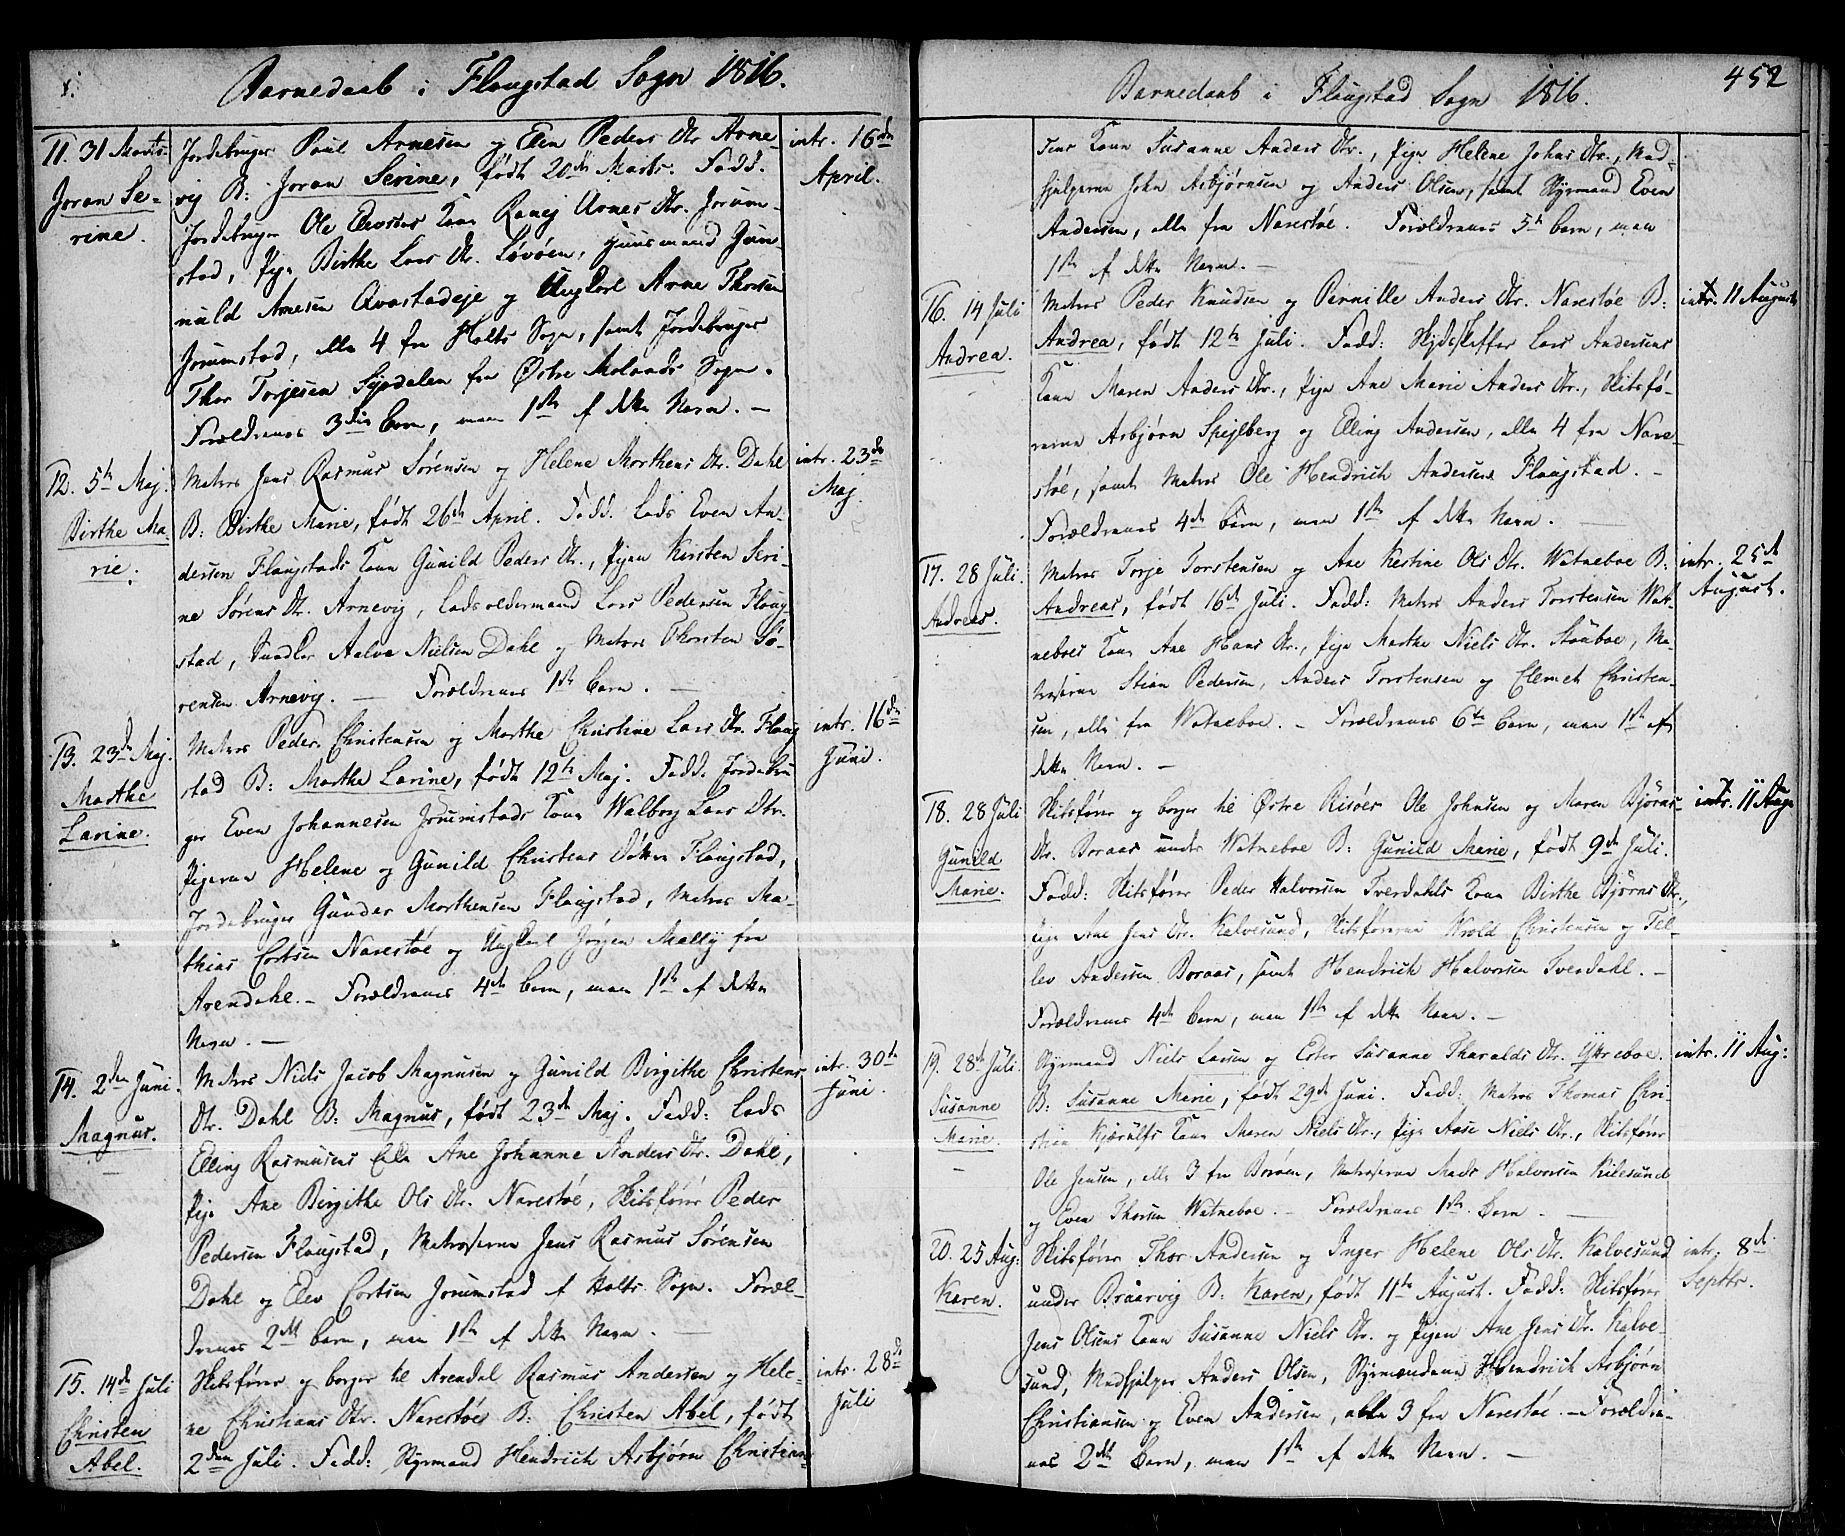 Barnedaab i Flaugstad Sogn 1816.
11. 31 Marts.
Joran Se-
rine.
Jordebruger Paul Arnesen og Elen Peders Dtr. Arne-
vig B: Joran Serine, født 20de Marts. Fadd.
Jordebruger Ole Kone Arnes Dtr. Jorum-
stad, Pige Birthe Lars Dtr. Løvøen, Huusmand Gun-
nuld Arnesen Qvastadeje og Ungkarl Arne Thorsen
Jorumstad, alle 4 fra Holts Sogn, samt Jordebruger
Thor Torjesen fra Østre Molands Sogn.
Forældrenes 3die Barn, men 1ste af dette Navn. —
intr. 16de
April.
12. 5te Maj.
Birthe Ma
rie.
Matros Jens Rasmus Sørensen og Helene Morthens Dtr. Dahl
B: Birthe Marie, født 26de April. Fadd. Lods Even An-
dersen Flaugstads Kone Gunild Peders Dtr., Pigen Kirsten Seri-
ne Sørens Dtr. Arnevig, Lodsoldermand Lars Pedersen Flaug-
stad, Snedker Aalve Nielsen Dahl og Matros Thorsten Sø-
rensen Arnevig. — Forældrenes 1ste Barn. —
intr. 23de
Maj.
13. 23de Maj.
Marthe
Larine.
Matros Peder Christensen og Marthe Christine Lars Dtr. Flaug
stad B: Marthe Larine, født 12te Maj. Fadd. Jordebru
ger Even Johannesen Jorumstads Kone Walborg Lars Dtr.
Pigerne Helene og Gunild Christens Døtre Flaugstad,
Jordebruger Gunder Morthensen Flaugstad, Matros Ma-
thias Cortsen Narestøe og Ungkarl Jørgen Mally fra
Arendahl. — Forældrenes 4de Barn, men 1ste af dette
Navn. —
intr. 16de
Juni.
14. 2den Juni.
Magnus.
Matros Niels Jacob Magnusen og Gunild Birgithe Christens
Dtr. Dahl B: Magnus, født 23de Maj. Fadd: Lods
Elling Rasmusens Ane Johanne Anders Dtr. Dahl,
Pige Ane Birgithe Ols Dtr. Narestøe, Skibsfører Peder
Pedersen Flaugstad, Matroserne Jens Rasmus Sørensen
Dahl og Elev Cortsen Jorumstad af Holts Sogn. Foræl-
drenes 2det Barn, men 1ste af dette Navn. —
intr. 30te
Juni.
15. 14de Juli
Christen
Abel.
Skibsfører og borger til Arendal Rasmus Andersen og Hele-
ne Christians Dtr. Narestøe B: Christen Abel, født
2den Juli. Fadd: Styrmand Hendrich Asbjørn Christian-
intr. 28de
Juli
Barnedaab i Flaugstad Sogn 1816.
452
sens Kone Susanne Anders Dtr., Pige Helene Johns Dtr., Mad-
hjelperne John Asbjørnsen og Anders Olsen, samt Styrmand Even
Andersen, alle fra Narestøe. Forældrenes 5te Barn, men
1ste af dette Navn. —
16. 14 Juli
Andrea.
Matros Peder Knudsen og Pernille Anders Dtr. Narestøe B:
Andrea, født 12te Juli. Fadd: Skydsskaffer Lars Andersens
Kone Maren Anders Dtr., Pige Ane Marie Anders Dtr., Skibsfø-
rerne Asbjørn Spejlberg og Elling Andersen, alle 4 fra Nare-
støe, samt Matros Ole Hendrich Andersen Flaugstad. —
Forældrenes 4de Barn, men 1ste af dette Navn. —
intr. 11 August
17. 28 Juli.
Andreas.
Matros Torje Torstensen og Ane Kestine Ols Dtr. Watneboe B:
Andreas, født 16de Juli. Fadd: Matros Anders Torstensen Wat-
neboes Kone Ane Hans Dtr., Pige Marthe Niels Dtr. Stouboe, Ma-
troserne Stian Pedersen, Anders Torstensen og Clemet Christen-
sen, alle fra Watneboe. — Forældrenes 6te Barn, men 1ste af
dette Navn. —
intr. 25de
August.
18. 28 Juli
Gunild
Marie.
Skibsfører og borger til Østre Risøer Ole Johnsen og Maren Bjørns
Dtr. Boraas under Watneboe B: Gunild Marie, født 9de Juli.
Fadd: Skibsfører Peder Halvorsen Tverdahls Kone Birthe Bjørns Dtr.,
Pige Ane Jens Dtr. Kalvesund, Skibsførerne Krold Christensen og Tel-
lev Andersen Boraas, samt Hendrich Halvorsen Tverdahl. —
Forældrenes 4de Barn, men 1ste af dette Navn. —
intr. 11 Aug.
19. 28de Juli.
Susanne
Marie.
Styrmand Niels Larsen og Ester Susanne Tharalds Dtr. Ytreboe.
B: Susanne Marie, født 29de Juni. Fadd: Matros Thomas Chri-
stian Kjærulfs Kone Maren Niels Dtr., Pige Aase Niels Dtr., Skibsfører
Ole Jensen, alle 3 fra Borøen, Matroserne Mads Halvorsen Kilesund
og Even Thorsen Watneboe. — Forældrenes 1ste Barn. —
intr. 11 Aug:
20. 25 Aug:
Karen.
Skibsfører Thor Andersen og Inger Helene Ols Dtr. Kalvesund
under Braarvig B: Karen, født 11te August. Fadd: Skibsfører
Jens Olsens Kone Susanne Niels Dtr. og Pigen Ane Jens Dtr. Kalve-
sund, Madhjelper Anders Olsen, Styrmændene Hendrich Asbjørn
Christiansen og Even Andersen, alle 3 fra Narestøe. — Forældre-
nes 2det Barn, men 1ste af dette Navn. —
intr: 8de
Septbr.